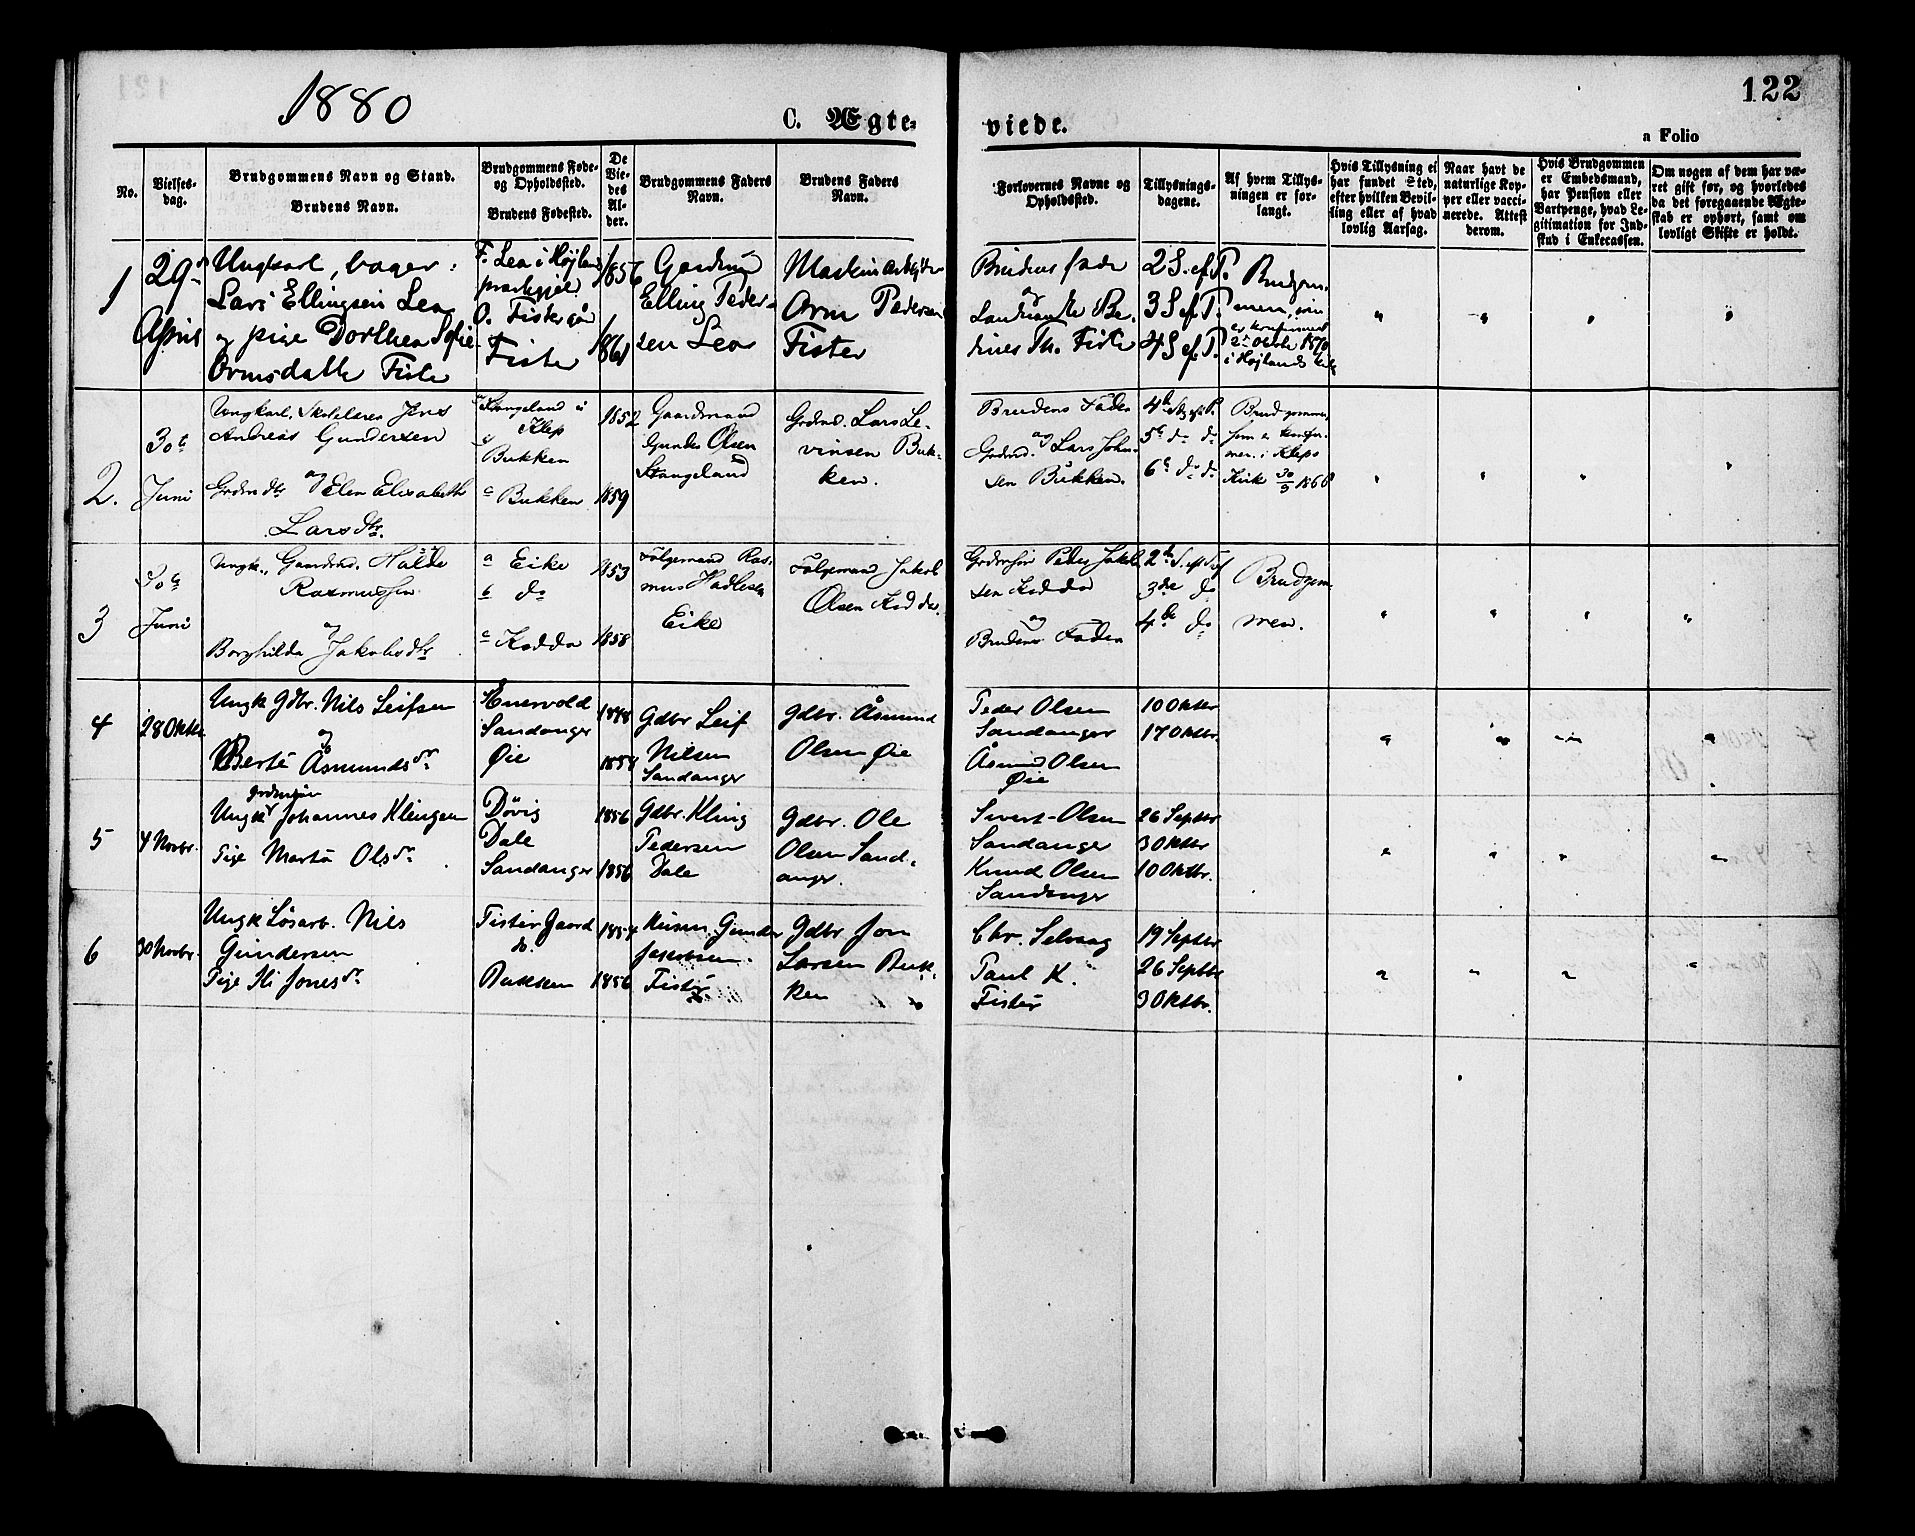 1880
122
C. Ægte-
viede.
a Folio
No.
Vielses-
dag.
Brudgommens Navn og Stand.
Brudens Navn.
Brudgommens Føde-
og Opholdssted.
Brudens Fødested.
De
Vie-
des
Al-
der.
Brudgommens Faders
Navn.
Brudens Faders
Navn.
Forlovernes Navne og
Opholdssted.
Tillysnings-
dagene.
Af hvem Tillys-
ningen er for-
langt.
Hvis Tillysning ei
har fundet Sted,
efter hvilken Bevil-
ling eller af hvad
lovlig Aarsag.
Naar havt de
naturlige Kop-
per eller vacci-
nerede. Attest
derom.
Hvis Brudgommen
er Embedsmand,
har Pension eller
Vartpenge, hvad Le-
gitimation for Ind-
skud i Enkecassen.
Om nogen af dem har væ-
ret gift før, og hvorledes
da det foregaaende Ægte-
skab er ophørt, samt om
lovligt Skifte er holdt.
1
29de
April
Ungkarl, bager
Lars Ellingsen Lea
og pige Dorthea Sofie
Ormsdatte Fiste
F. Lea i Højland
præstegjeld
O. Fister
Fister
1856
1861
Elling Peder-
sen Lea
Maskinarbejder
Orm Pedersen
Fister
Brudens fader
og
Th. Fiste
2 S. ef. P.
3 S. ef. P.
4 S. ef. P.
Brudgom-
men, som
er konfirmeret
1870
i Højlands
2.
30te
Juni
Ungkarl, Skolelærer Jens
Andreas Gundersen
og
Grdmdtr Elen Elisabeth
Larsdtr.
Stangeland i
Klep
Bukken
c Bukken
1852
1859
Gaardmand
Gunder Olsen
Stangeland
Grdmd. Lars Le-
vinsen Buk-
ken.
Brudens Fader
og
Grdmd. Lars John-
sen Bukken.
4de
5te do do
6te do do
Brudgommen,
som er konfir-
mer. i Kleps
Kirke 30/9 1866
3
Juni
Ungk., Gaardmd. Halde
Rasmussen
og
Borghilda Jakobsdtr
a Eike
b do
c Kodda
1853
1858
Følgemand Ras-
mus Hadlesen
Eike
Følgemand Jakob
Olsen Kodda.
Peder Jakob-
sen Kodda
og
Brudens Fader
2den
3die do
4de do
Brudgom-
men.
4
28 Oktbr.
Ungk Gdbr. Nils Leifsen
og
Berte Åsmundsdr
Enervold
Sandanger
Øie
1848
1858
Gdbr Leif
Nilsen
Sandanger
Gdbr. Åsmund
Olsen Øie
Peder Olsen
Sandanger
Åsmund Olsen
Øie
10 Oktbr
17 Oktbr.
5
4 Novbr.
Ungk Johannes Klingsen
Pige Marta Olsdr
Døvig
Dale
Sandanger
1856
1856
Gdbr. Kling
Pedersen
Dale
Gdbr. Ole
Olsen Sand-
anger.
Sivert Olsen
Sandanger
Knud Olsen
Sandanger
26 Septbr
3 Oktbr
10 Oktbr.
6
30 Novbr.
Ungk Løsarb. Nils
Gundersen
Pige Ili Jonesdr
Fister Gaard
do.
Bukken
1854
1856
Husm. Gunder
Jakobsen.
Fister
Gdbr Jon
Larsen Buk-
ken
Chr. Selvaag
Paul K.
Fister
19 Septbr
26 Septbr
3 Oktbr.